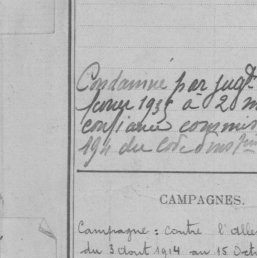 Condamné par jugt
février 1935 à 20 m
confiance commis
194 du
CAMPAGNES.
Campagne : contre l'Alle
du 3 août 1914 au 15 Oct